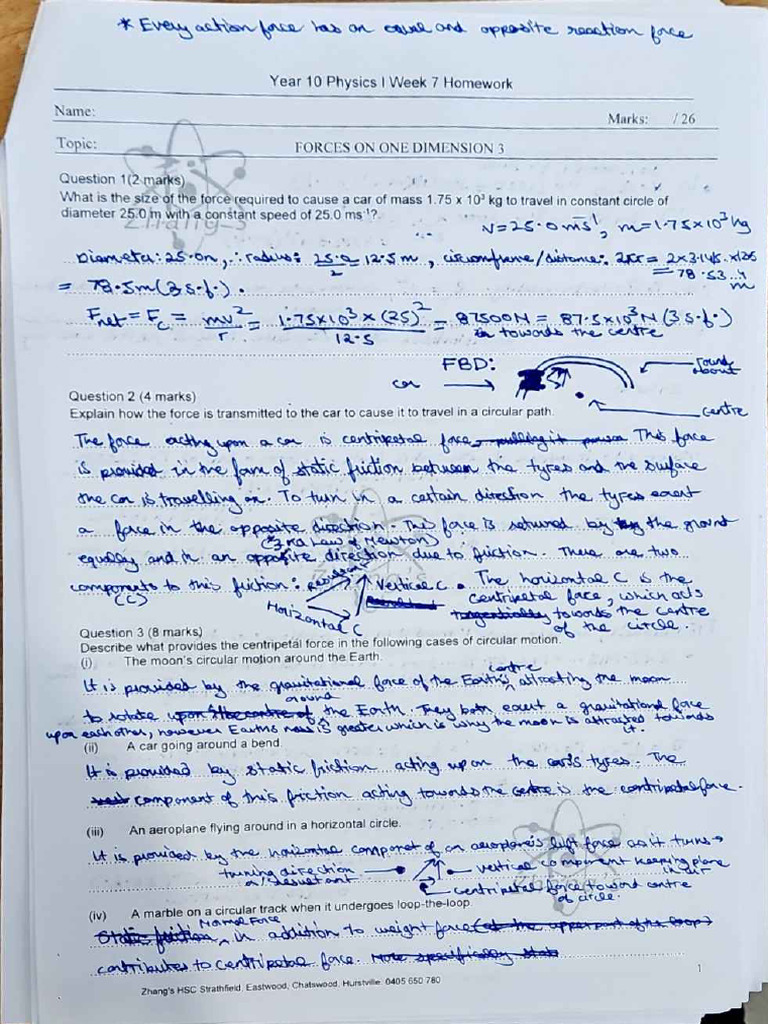 * Every action force has an equal and opposite reaction force
Year 10 Physics | Week 7 Homework
Name:
Marks: / 26
Topic: FORCES ON ONE DIMENSION 3
Question 1(2 marks)
What is the size of the force required to cause a car of mass 1.75 x 10³ kg to travel in constant circle of
diameter 25.0 m with a constant speed of 25.0 ms⁻¹?
v=25.0 ms⁻¹, m=1.75x10³ kg
Diameter: 25.0m, ∴ radius: 25.0/2 = 12.5m, circumference/distance: 2πr = 2x3.145..x12.5
= 78.53..4 m
= 78.5m (3 s.f.).
Fnet = Fc = mv²/r = 1.75x10³ x (25)²/12.5 = 87500N = 87.5x10³N (3 s.f.)
towards the centre
FBD:
car
round about
centre
Question 2 (4 marks)
Explain how the force is transmitted to the car to cause it to travel in a circular path.
The force acting upon a car is centripetal force, This force
is provided in the form of static friction between the tyres and the surface
the car is travelling on. To turn in a certain direction the tyres exert
a force in the opposite direction. This force is returned by the ground
(3rd Law of Newton)
equally and in an opposite direction due to friction. There are two
components to this friction:
(C)
Resultant
Vertical C
Horizontal C
. The horizontal C is the
centripetal force, which acts
towards the centre
of the circle.
Question 3 (8 marks)
Describe what provides the centripetal force in the following cases of circular motion.
(i) The moon's circular motion around the Earth.
It is provided by the gravitational force of the Earth's centre attracting the moon
to rotate around the Earth. They both exert a gravitational force
upon each other, however Earth's is greater which is why the moon is attracted towards
it.
(ii) A car going around a bend.
It is provided by static friction acting upon the car's tyres. The
component of this friction acting towards the centre is the centripetal force.
(iii) An aeroplane flying around in a horizontal circle.
It is provided by the horizontal component of an aeroplane's lift force as it turns →
turning direction
or resultant
vertical component keeping plane
in air
centripetal force toward centre
of circle.
(iv) A marble on a circular track when it undergoes loop-the-loop.
Normal Force in addition to weight force (at the upper part of the loop)
contributes to centripetal force.
1
Zhang's HSC Strathfield, Eastwood, Chatswood, Hurstville. 0405 650 780